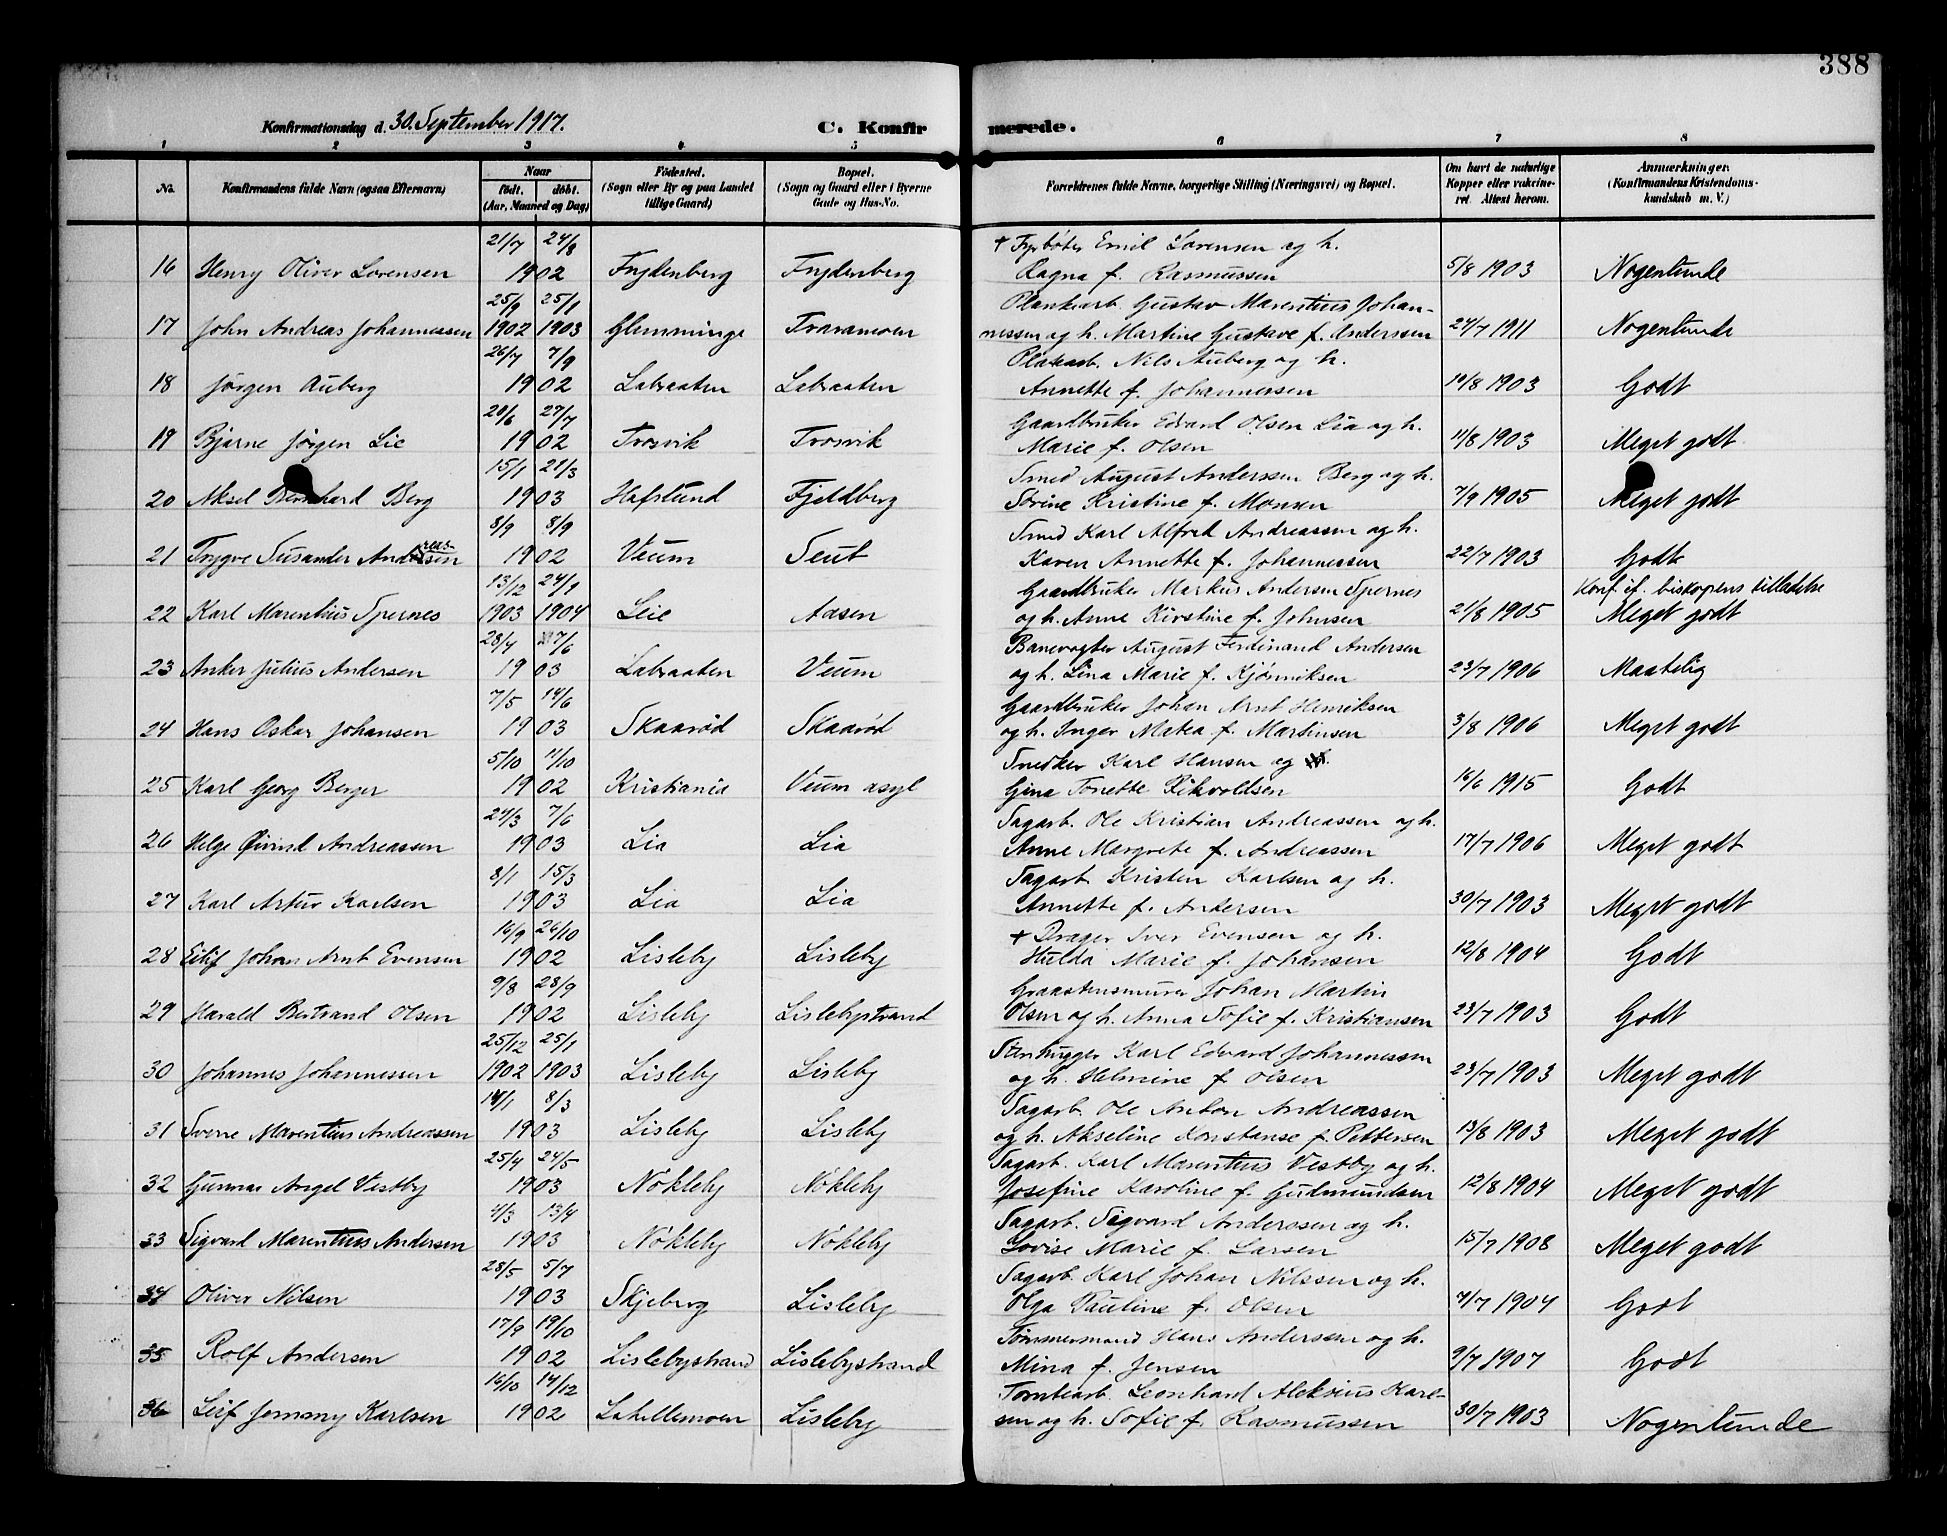 388
Konfirmationsdag d. 30. September 1917. C. Konfirmerede.
1 2 3 4 5 6 7 8
No. Konfirmandens fulde Navn (ogsaa Efternavn) Naar født. døbt. (Aar, Maaned og Dag) Fødested. (Sogn eller By og paa Landet tillige Gaard) Bopæl. (Sogn og Gaard eller i Byerne Gade og Hus-No. Forældrenes fulde Navne, borgerlige Stilling (Næringsvei) og Bopæl. Om havt de naturlige Kopper eller vaccineret. Attest herom. Anmærkninger. (Konfirmandens Kristendomskundskab m. V.)
21/7 24/8 + Fyrbøter Emil Lorensen og h.
16 Henry Oliver Lorensen 1902 Frydenberg Frydenberg Ragna f. Rasmussen 5/8 1903 Nogenlunde
25/9 25/1 Plankearb. Gustav Marentius Johan-
17 John Andreas Johannessen 1902 1903 Glemminge Traramoen nessen og h. Martine Gustave f. Anderssen 24/7 1911 Nogenlunde
26/7 7/9 Platearb. Nils Auberg og h.
18 Jørgen Auberg 1902 Labraaten Labraaten Annette f. Johannessen 10/8 1903 Godt
20/6 27/7 Gaardbruker Edvard Olsen Lia og h.
19 Bjarne Jørgen Lie 1902 Trosvik Trosvik Marie f. Olsen 11/8 1903 Meget godt
15/1 21/3 Smed August Anderssen Berg og h.
20 Aksel Bernhard Berg 1903 Hafslund Fjeldberg Sovine Kristine f. Monsen 7/9 1905 Meget godt
8/9 8/9 Smed Karl Alfred Andreassen og h.
21 Trygve Susander Andreassen 1902 Veum Seut Karen Annette f. Johannessen 22/7 1903 Godt
13/12 24/1 Gaardbruker Markus Andersen Spernes Konf. if. biskopens tilladelse
22 Karl Marentius Spernes 1903 1904 Leie Aasen og h. Anne Kirstine f. Johnsen 21/8 1905 Meget godt
28/4 7/6 Banevogter August Ferdinand Andersen
23 Anker Julius Andersen 1903 Labraaten Veum og h. Lina Marie f. Kjønniksen 23/7 1906 Maatelig
7/5 14/6 Gaardbruker Johan Arnt Henriksen
24 Hans Oskar Johansen 1903 Skaarød Skaarød og h. Inger Matea f. Martinsen 3/8 1906 Meget godt
5/10 11/10 Snedker Karl Hansen og
25 Karl Georg Berger 1902 Kristiania Veum asyl Gina Tonette Rikvoldsen 16/6 1915 Godt
24/3 7/6 Sagarb. Ole Kristian Andreassen og h.
26 Helge Øivind Andreassen 1903 Lia Lia Anne Margrete f. Andreassen 17/7 1906 Meget godt
8/1 15/3 Sagarb. Kristen Karlsen og h.
27 Karl Artur Karlsen 1903 Lia Lia Annette f. Andersen 30/7 1903 Meget godt
16/9 26/10 + Drager Iver Evensen og h.
28 Eilif Johan Arnt Evensen 1902 Lisleby Lisleby Hulda Marie f. Johansen 12/8 1904 Godt
9/8 28/9 Graastensmurer Johan Martin
29 Harald Bertrand Olsen 1902 Lisleby Lislebystrand Olsen og h. Anna Sofie f. Kristiansen 23/7 1903 Godt
25/12 25/1 Stenhugger Karl Edvard Johannessen
30 Johannes Johannessen 1902 1903 Lisleby Lisleby og h. Helmine f. Olsen 23/7 1903 Meget godt
14/1 8/3 Sagarb. Ole Anton Andreassen
31 Sverre Marentius Andreassen 1903 Lisleby Lisleby og h. Akseline Konstanse f. Pettersen 13/8 1903 Meget godt
25/4 24/5 Sagarb. Karl Marentius Vestby og h.
32 Gunnar Angel Vestby 1903 Nökleby Nökleby Josefine Karoline f. Gulmundsen 12/8 1904 Meget godt
4/3 13/4 Sagarb. Sigvard Anderssen og h.
33 Sigvard Marentius Andersen 1903 Nökleby Nökleby Lovise Marie f. Larsen 15/7 1908 Meget godt
28/5 5/7 Sagarb. Karl Johan Nilssen og h.
34 Oliver Nilsen 1903 Skjeberg Lisleby Olga Pauline f. Olsen 7/7 1904 Godt
17/9 19/10 Tømmermand Hans Anderssen og h.
35 Rolf Andersen 1902 Lislebystrand Lislebystrand Mina f. Jensen 9/7 1907 Godt
16/10 14/12 Tomtearb. Leonhard Aleksius Karl-
36 Leif Jemmy Karlsen 1902 Lahellemoen Lisleby sen og h. Sofie f. Rasmussen 30/7 1903 Nogenlunde